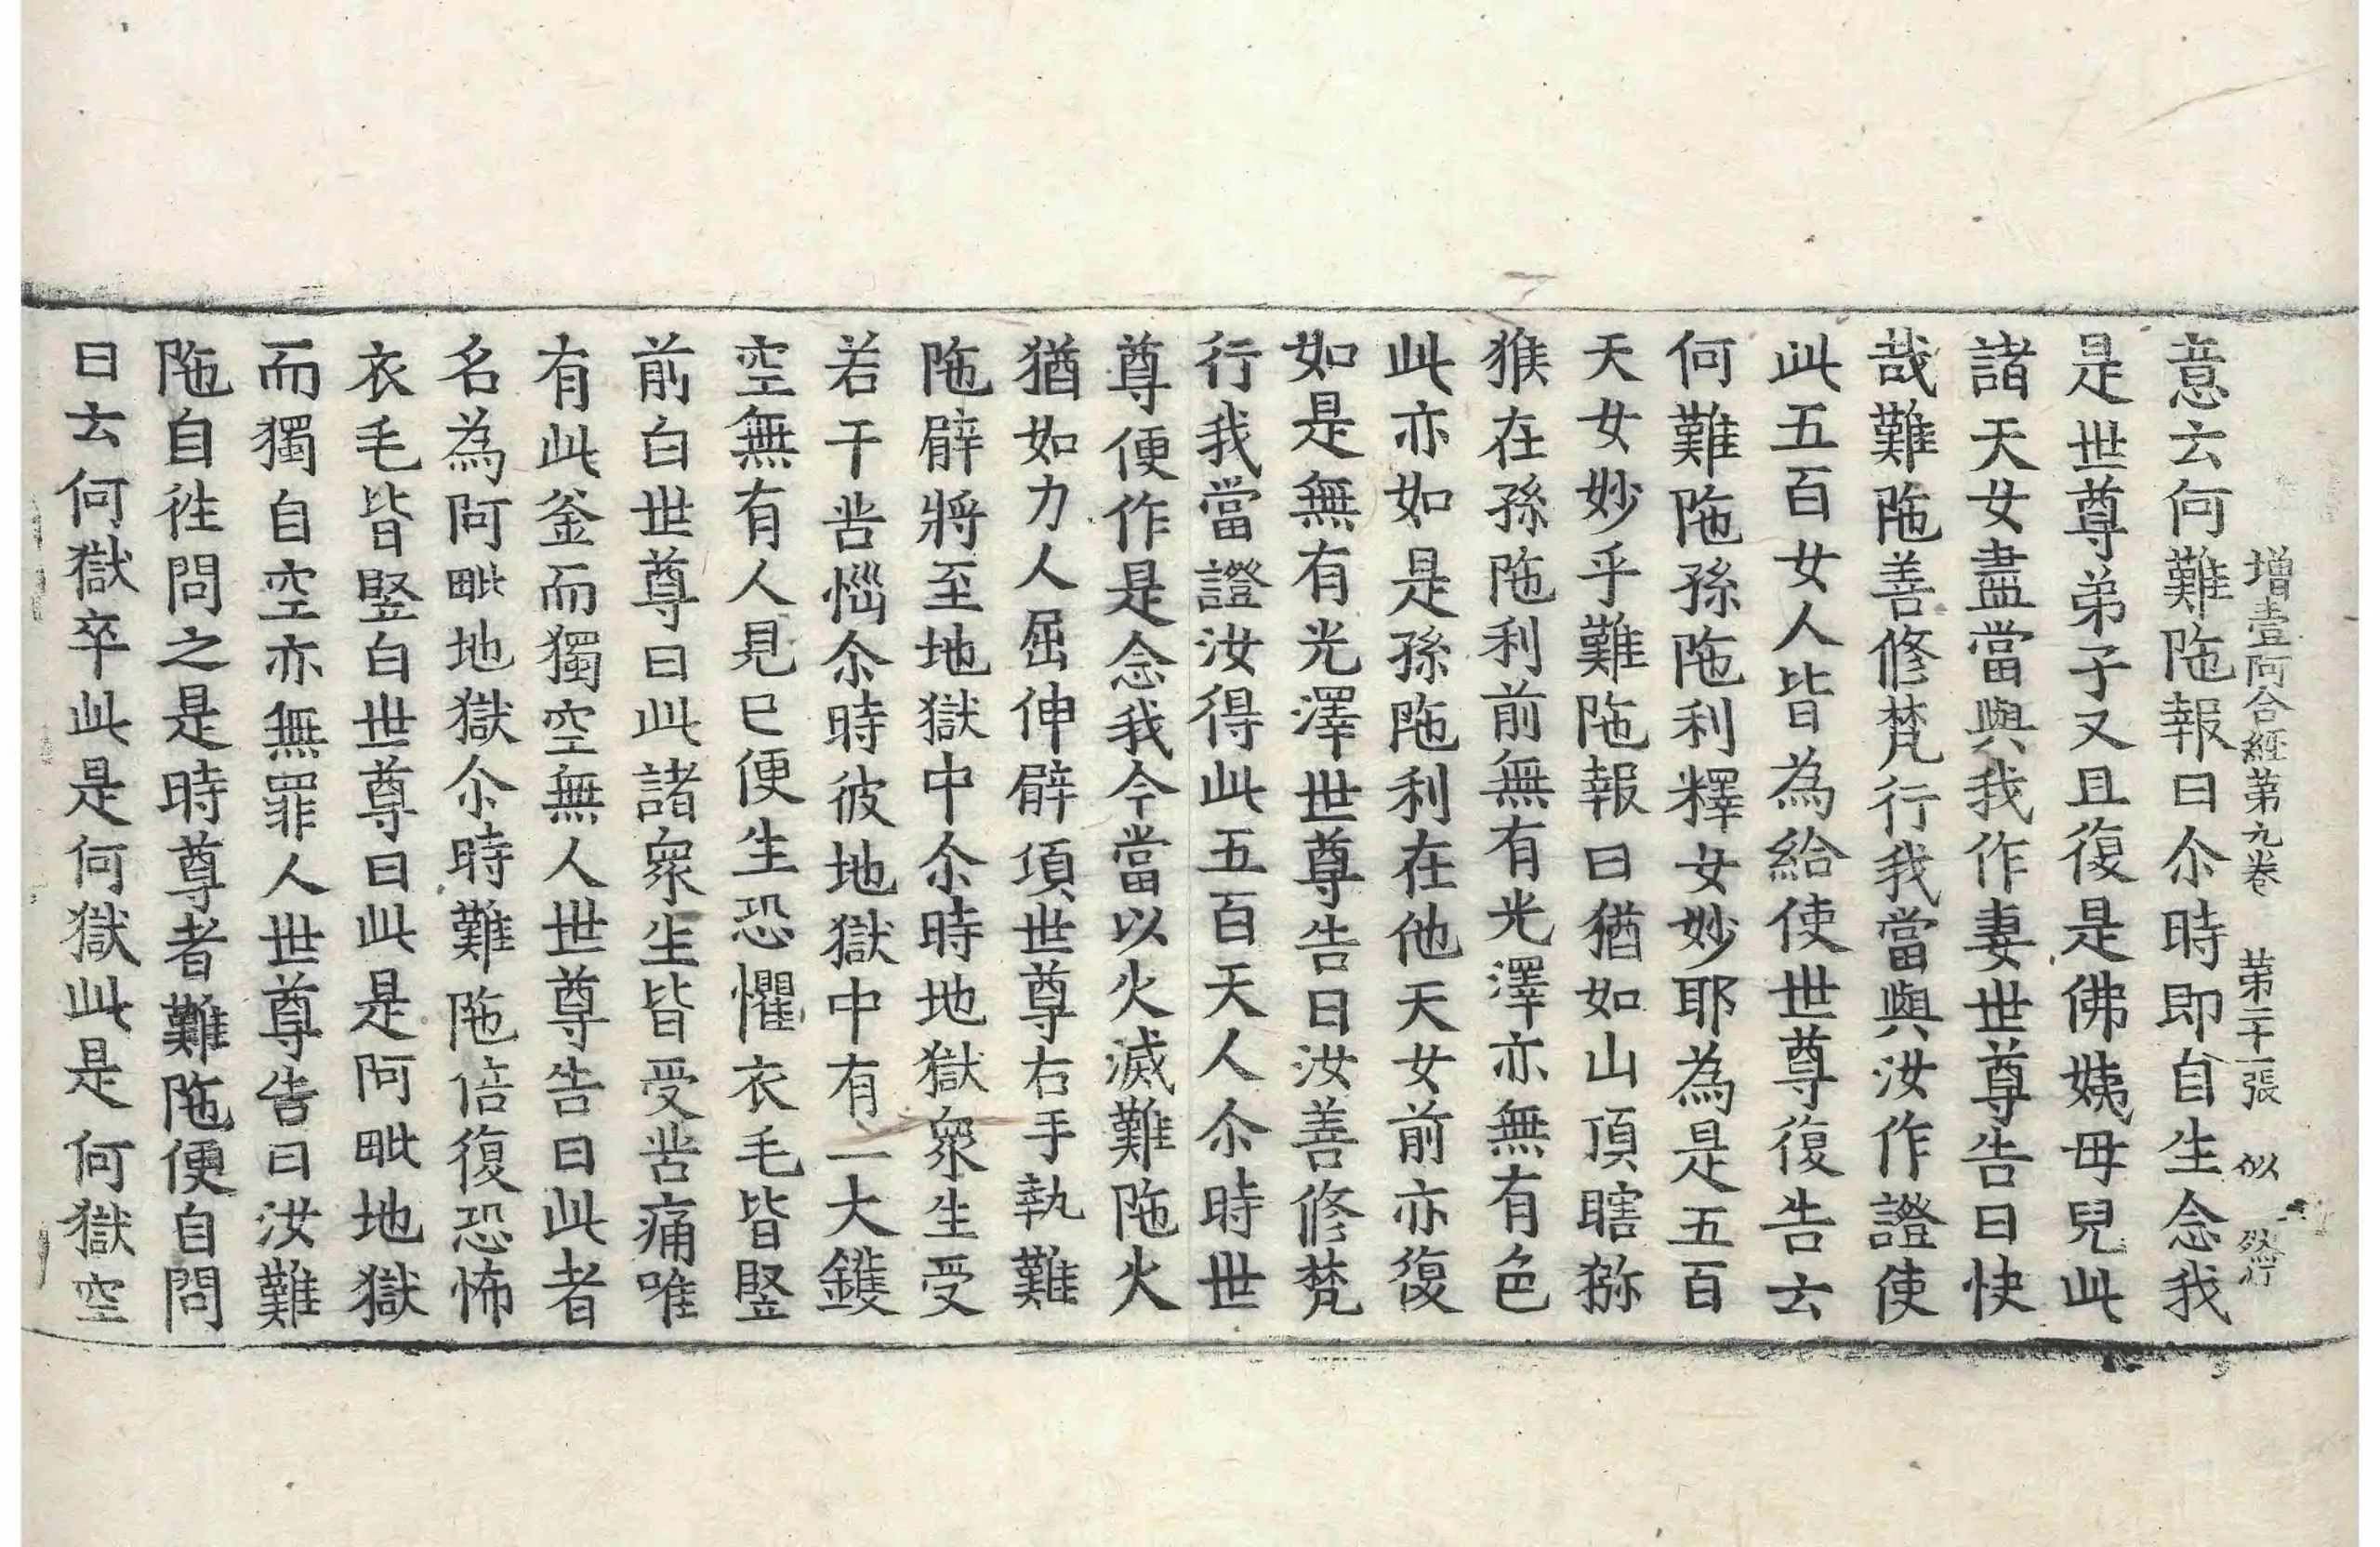 增壹阿含經第九卷　第二十一張　似
意云何難陁報曰尒時即自生念我
是世尊弟子又且復是佛姨母兒此
諸天女盡當與我作妻世尊告曰快
哉難陁善修梵行我當與汝作證使
此五百女人皆為給使世尊復告云
何難陁孫陁利釋女妙耶為是五百
天女妙乎難陁報曰猶如山頂瞎獼
猴在孫陁利前無有光澤亦無有色
此亦如是孫陁利在他天女前亦復
如是無有光澤世尊告曰汝善修梵
行我當證汝得此五百天人尒時世
尊便作是念我今當以火滅難陁火
猶如力人屈伸臂頃世尊右手執難
陁臂將至地獄中尒時地獄衆生受
若干苦惱尒時彼地獄中有一大鑊
空無有人見巳便生恐懼衣毛皆竪
前白世尊曰此諸衆生皆受苦痛唯
有此釜而獨空無人世尊告曰此者
名為阿毗地獄尒時難陁倍復恐怖
衣毛皆竪白世尊曰此是阿毗地獄
而獨自空亦無罪人世尊告曰汝難
陁自往問之是時尊者難陁便自問
曰云何獄卒此是何獄此是何獄空